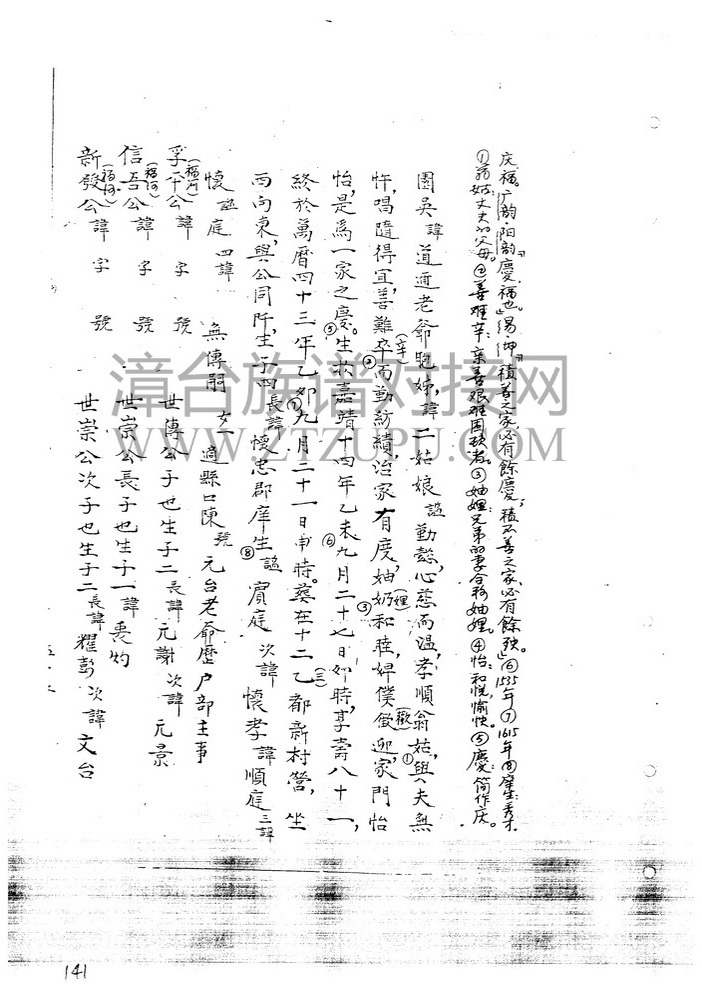 庆福。广韵·阳韵「慶，福也。」易·坤「積善之家，必有餘慶；積不善之家，必有餘殃。」⑥1535年⑦1615年⑧庠生：秀才
①翁姑：丈夫的父母。②善难辛：亲善艰难困苦者。③妯娌：兄弟的妻合称妯娌。④怡：和悦，愉快。⑤慶：简作庆。
圍吳諱道通老爺胞姊，諱二姑娘諡勤懿，心慈而溫，孝順翁姑①，與夫無
忤，唱隨得宜，善難卒(辛)②而勤紡績，治家有度，妯奶(娌)③和睦，婢僕僉(歡)迎，家門怡
怡，是爲一家之慶。⑤生於嘉靖十四年乙未⑥九月二十七日卯時，享壽八十一，
終於萬曆四十三年乙卯⑦九月二十一日申時。葬在十二乙(三)都新村營，坐
西向東，與公同阡，生子四長諱懷忠郡庠生⑧諡賓庭 次諱懷孝諱順庭 三諱
懷 諡庭 四諱 無傳嗣 女一適縣口陳號元台老爺歷户部主事
孚平公(福河)諱 字 號 世傳公子也生子二長諱元謝次諱元景
信吾公(福河)諱 字 號 世崇公長子也生子一諱喬灼
新發公(福河)諱 字 號 世崇公次子也生子二長諱耀彭次諱文台
漳台族谱对接网
WWW.ZTZUPU.COM
141